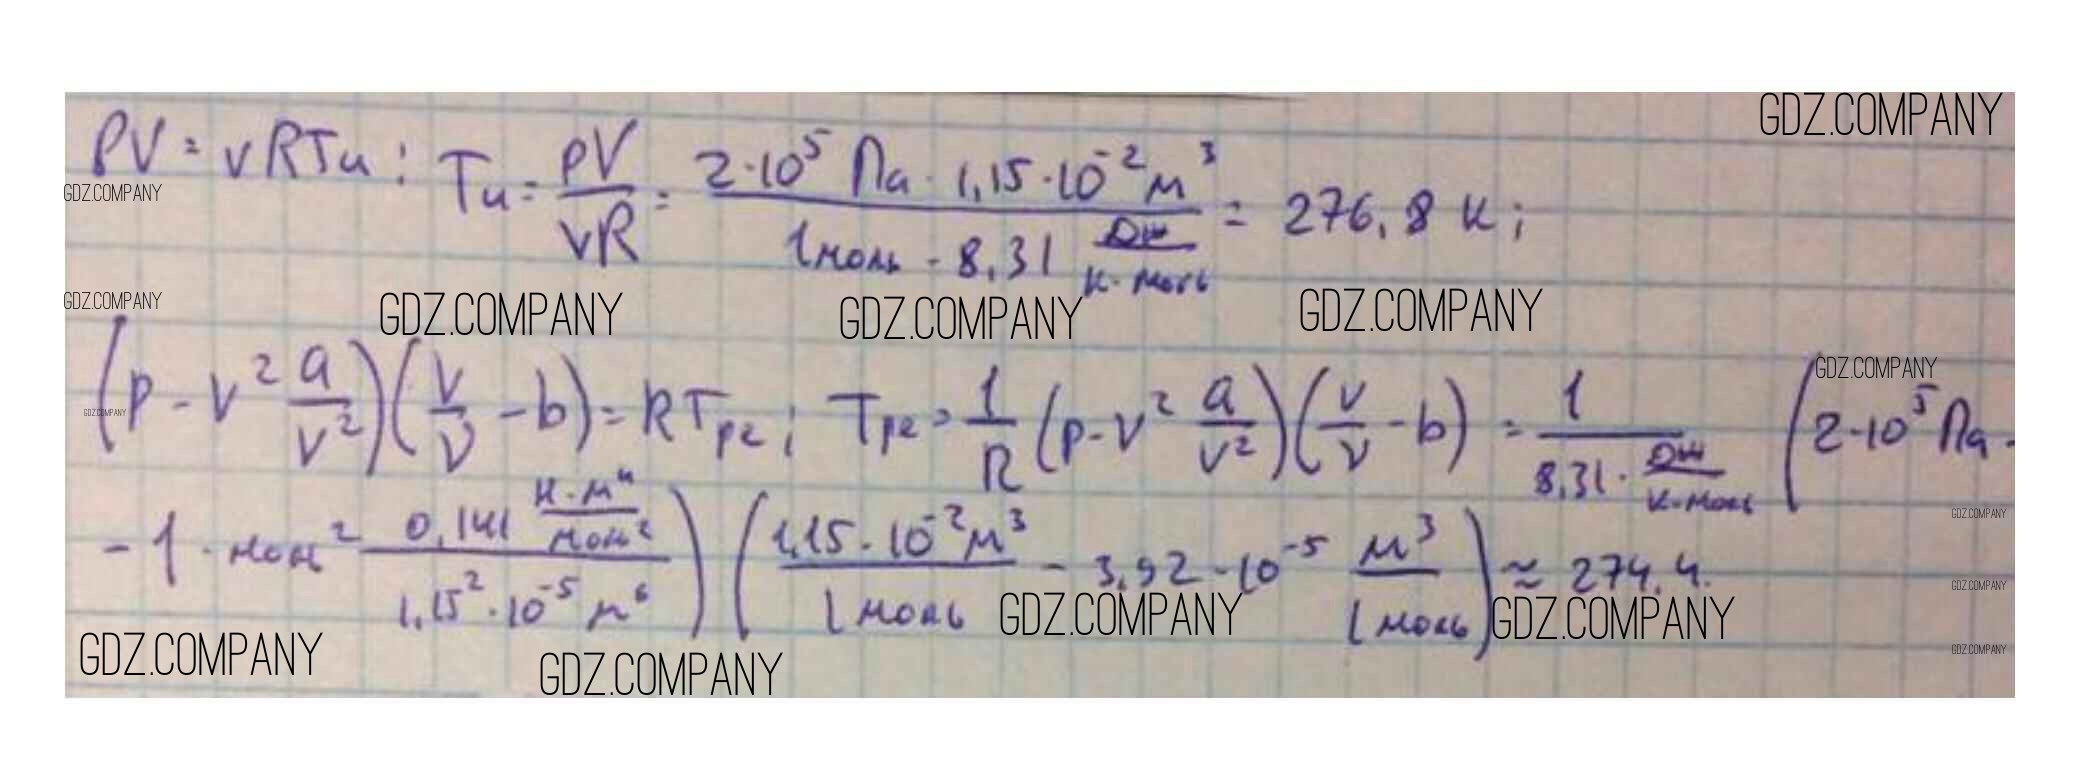 GDZ.COMPANY
PV = νRTи ; Tи = pV/νR = 2·10⁵ Па · 1,15·10⁻² м³ / 1 моль · 8,31 Дж/К·моль = 276,8 К;
GDZ.COMPANY
GDZ.COMPANY
GDZ.COMPANY GDZ.COMPANY GDZ.COMPANY
GDZ.COMPANY
(p - ν² a/V²)(V/ν - b) = RTрг ; Tрг = 1/R (p - ν² a/V²)(V/ν - b) = 1/8,31· Дж/К·моль (2·10⁵ Па -
GDZ.COMPANY
GDZ.COMPANY
- 1 · моль² 0,141 Н·м⁴/моль² / 1,15²·10⁻⁵ м⁶)(1,15·10⁻² м³/1 моль - 3,92·10⁻⁵ м³/1 моль) ≈ 274,4.
GDZ.COMPANY
GDZ.COMPANY GDZ.COMPANY
GDZ.COMPANY GDZ.COMPANY
GDZ.COMPANY